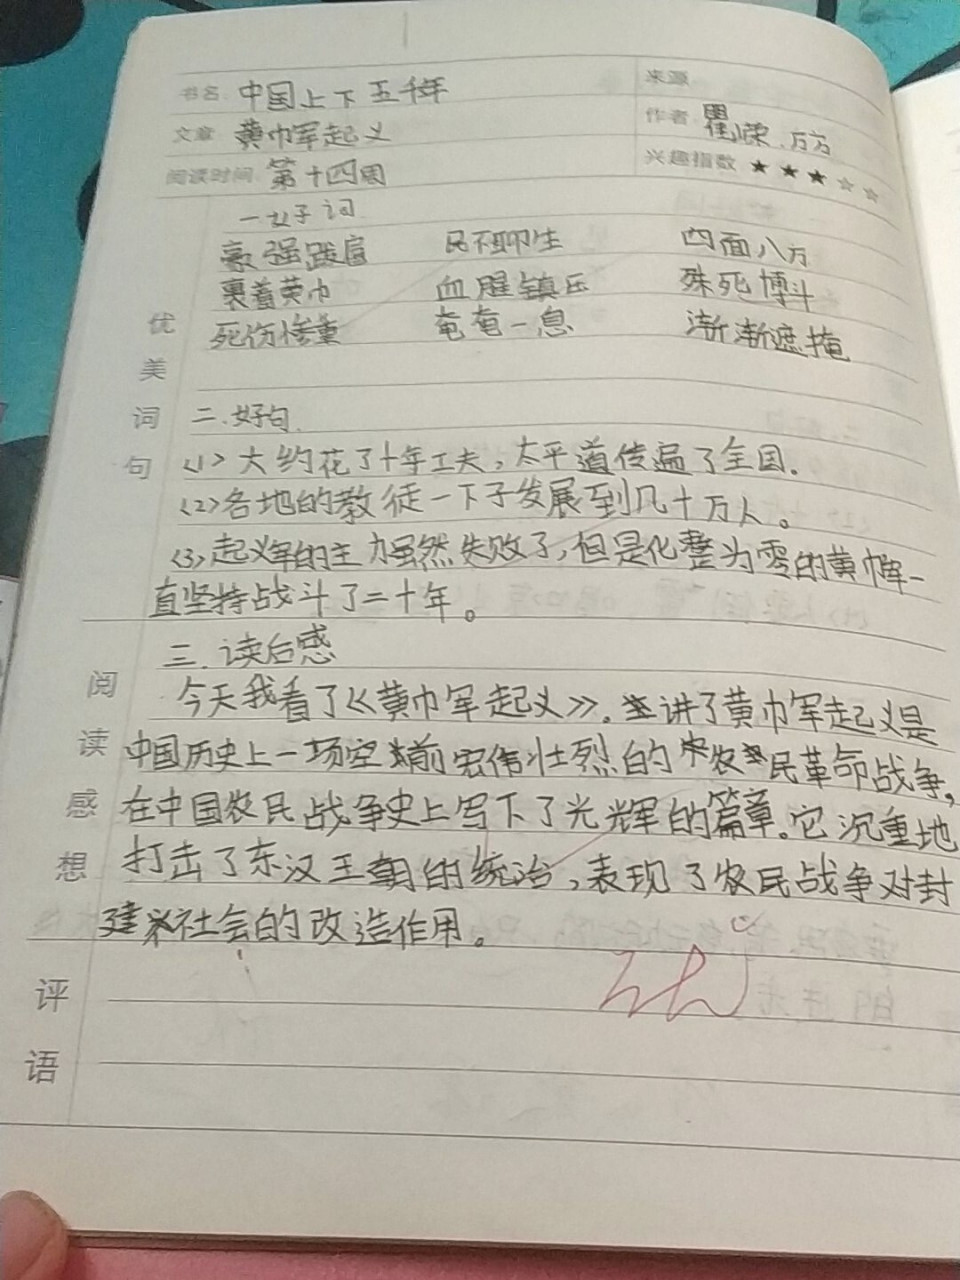 书名 中国上下五千年 来源
文章 黄巾军起义 作者 瞿荣.方方
阅读时间 第十四周 兴趣指数 ★★★☆☆
一.好词
豪强跋扈 民不聊生 四面八方
裹着黄巾 血腥镇压 殊死博斗
死伤惨重 奄奄一息 渐渐遮掩
优美词句
二.好句
(1)大约花了十年工夫,太平道传遍了全国.
(2)各地的教徒一下子发展到几十万人。
(3)起义军的主力虽然失败了,但是化整为零的黄巾军一
直坚持战斗了二十年。
阅读感想
三.读后感
今天我看了《黄巾军起义》。讲了黄巾军起义是
中国历史上一项空前宏伟壮烈的农民革命战争,
在中国农民战争史上写下了光辉的篇章。它沉重地
打击了东汉王朝的统治,表现了农民战争对封
建社会的改造作用。
评语